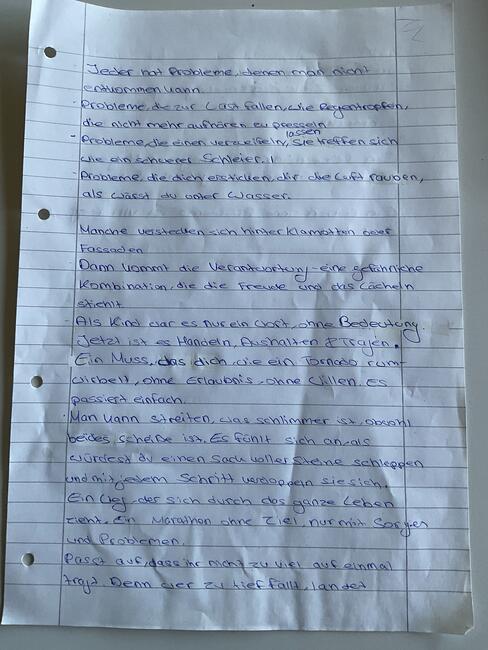 Jeder hat Probleme, denen man nicht
entkommen kann.
Probleme, die zur Last fallen, wie Regentropfen,
die nicht mehr aufhören zu presseln
- Probleme, die einen verzweifeln, lassen sie treffen sich
wie ein schwerer Schleier.
Probleme, die dich ersticken, dir die Luft rauben,
als wärst du unter Wasser.
Manche verstecken sich hinter Klamotten oder
Fassaden
Dann kommt die Verantwortung - eine gefährliche
Kombination, die die Freude und das Lächeln
stiehlt
Als Kind war es nur ein Wort, ohne Bedeutung.
Jetzt ist es Handeln, Aushalten & Tragen.
Ein Muss, das dich wie ein Tornado rum-
wirbelt, ohne Erlaubnis, ohne Willen. Es
passiert einfach.
Man kann streiten, was schlimmer ist, obwohl
beides scheiße ist. Es fühlt sich an, als
würdest du einen Sack voller Steine schleppen
und mit jedem Schritt verdoppeln sie sich.
Ein Weg, der sich durch das ganze Leben
zieht. Ein Marathon ohne Ziel, nur mit Sorgen
und Problemen.
Passt auf, dass ihr nicht zu viel auf einmal
tragt. Denn wer zu tief fällt, landet